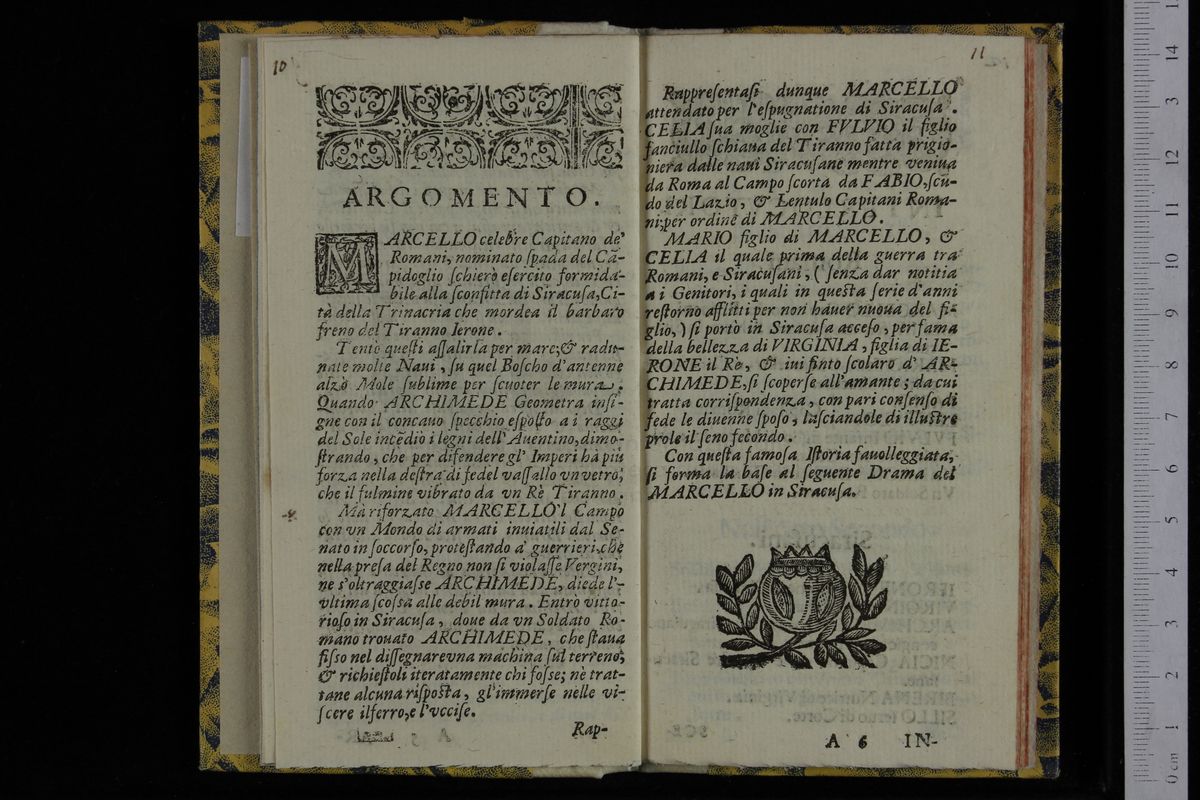 10
ARGOMENTO.
MARCELLO celebre Capitano de'
Romani, nominato ſpada del Cã-
pidoglio ſchierò eſercito formida-
bile alla ſconfitta di Siracuſa, Ci-
tà della Trinacria che mordea il barbaro
freno del Tiranno Ierone.
Tentò queſti aſſalirla per mare; & radu-
nate molte Naui, ſu quel Boſcho d'antenne
alzò Mole ſublime per ſcuoter le mura.
Quando ARCHIMEDE Geometra inſi-
gne con il concauo ſpecchio eſpoſto a i raggi
del Sole incẽdiò i legni dell'Auentino, dimo-
ſtrando, che per difendere gl' Imperi hà più
forza nella deſtra di fedel vaſſallo vn vetro,
che il fulmine vibrato da vn Rè Tiranno.
Mà riforzato MARCELLO'l Campo
con vn Mondo di armati inuiatili dal Se-
nato in ſoccorſo, proteſtando a' guerrieri, che
nella preſa del Regno non ſi violaſſe Vergini,
ne s'oltraggiaſse ARCHIMEDE, diede l'-
vltima ſcoſsa alle debil mura. Entrò vitto-
rioſo in Siracuſa, doue da vn Soldato Ro-
mano trouato ARCHIMEDE, che ſtaua
fiſso nel diſſegnare vna machina ſul terreno,
& richieſtoli iteratamente chi foſse; nè trat-
tane alcuna riſpoſta, gl'immerſe nelle vi-
ſcere il ferro, e l'vcciſe.
Rap-
11
Rappreſentaſi dunque MARCELLO
attendato per l'eſpugnatione di Siracuſa.
CELIA ſua moglie con FVLVIO il figlio
fanciullo ſchiaua del Tiranno fatta prigio-
niera dalle naui Siracuſane mentre veniua
da Roma al Campo ſcorta da FABIO, ſcu-
do del Lazio, & Lentulo Capitani Roma-
ni; per ordine di MARCELLO.
MARIO figlio di MARCELLO, &
CELIA il quale prima della guerra tra
Romani, e Siracuſani, (ſenza dar notitia
a i Genitori, i quali in queſta ſerie d'anni
reſtorno afflitti per non hauer nuoua del fi-
glio,) ſi portò in Siracuſa acceſo, per fama
della bellezza di VIRGINIA, figlia di IE-
RONE il Rè, & iui finto ſcolaro d' AR-
CHIMEDE, ſi ſcoperſe all'amante; da cui
tratta corriſpondenza, con pari conſenſo di
fede le diuenne ſpoſo, laſciandole di illuſtre
prole il ſeno fecondo.
Con queſta famoſa Iſtoria fauolleggiata,
ſi forma la baſe al ſeguente Drama del
MARCELLO in Siracuſa.
A 6 IN-